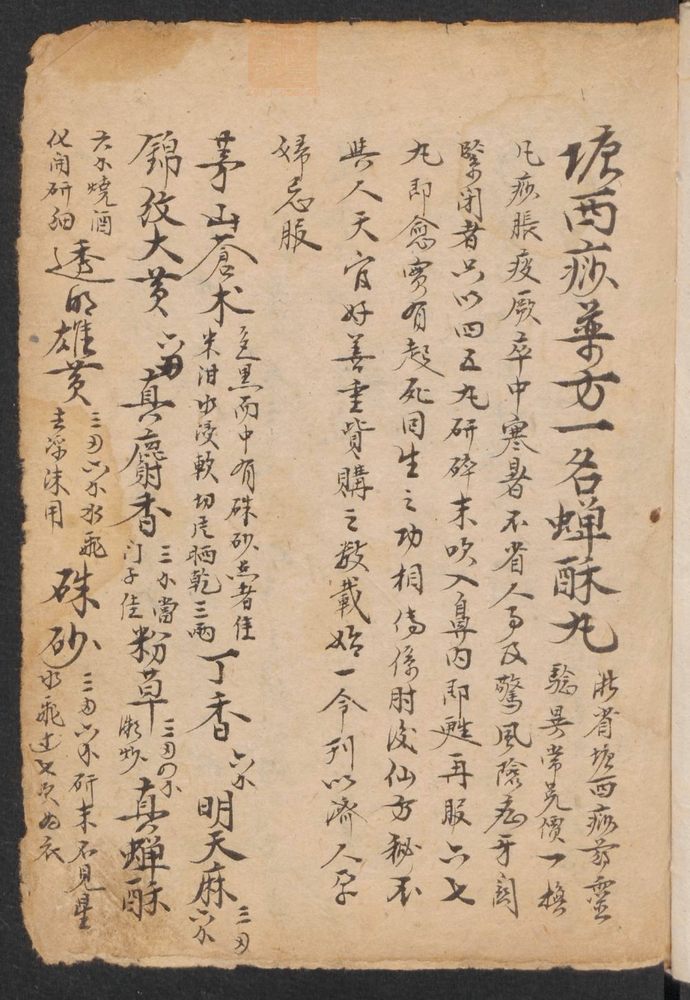 塘西痧藥方一名蟬酥丸
浙省塘西痧葯靈
驗異常兑價一換
凡痧脹痰厥卒中寒暑不省人事及驚風險危牙關
緊闭者只以四五丸研碎末吹入鼻內即甦再服六七
丸即愈實有起死囬生之功相傳係肘後仙方秘不
與人天官好善重貲購之数載始一合刋以濟人孕
婦忌服
茅山蒼术 色黑而中有硃砂点者佳
米泔水浸軟切片晒乾三兩
丁香 六个
明天麻 三刄
六个
錦紋大黄 六刄 真麝香 三个當
门子佳
粉草 三刄四个
微炒
真蟬酥
六个燒酒
化開研細
透明雄黄 三刄六个水飛
去浮沫用
硃砂 三刄六个研末不見星
水飛过七次為衣